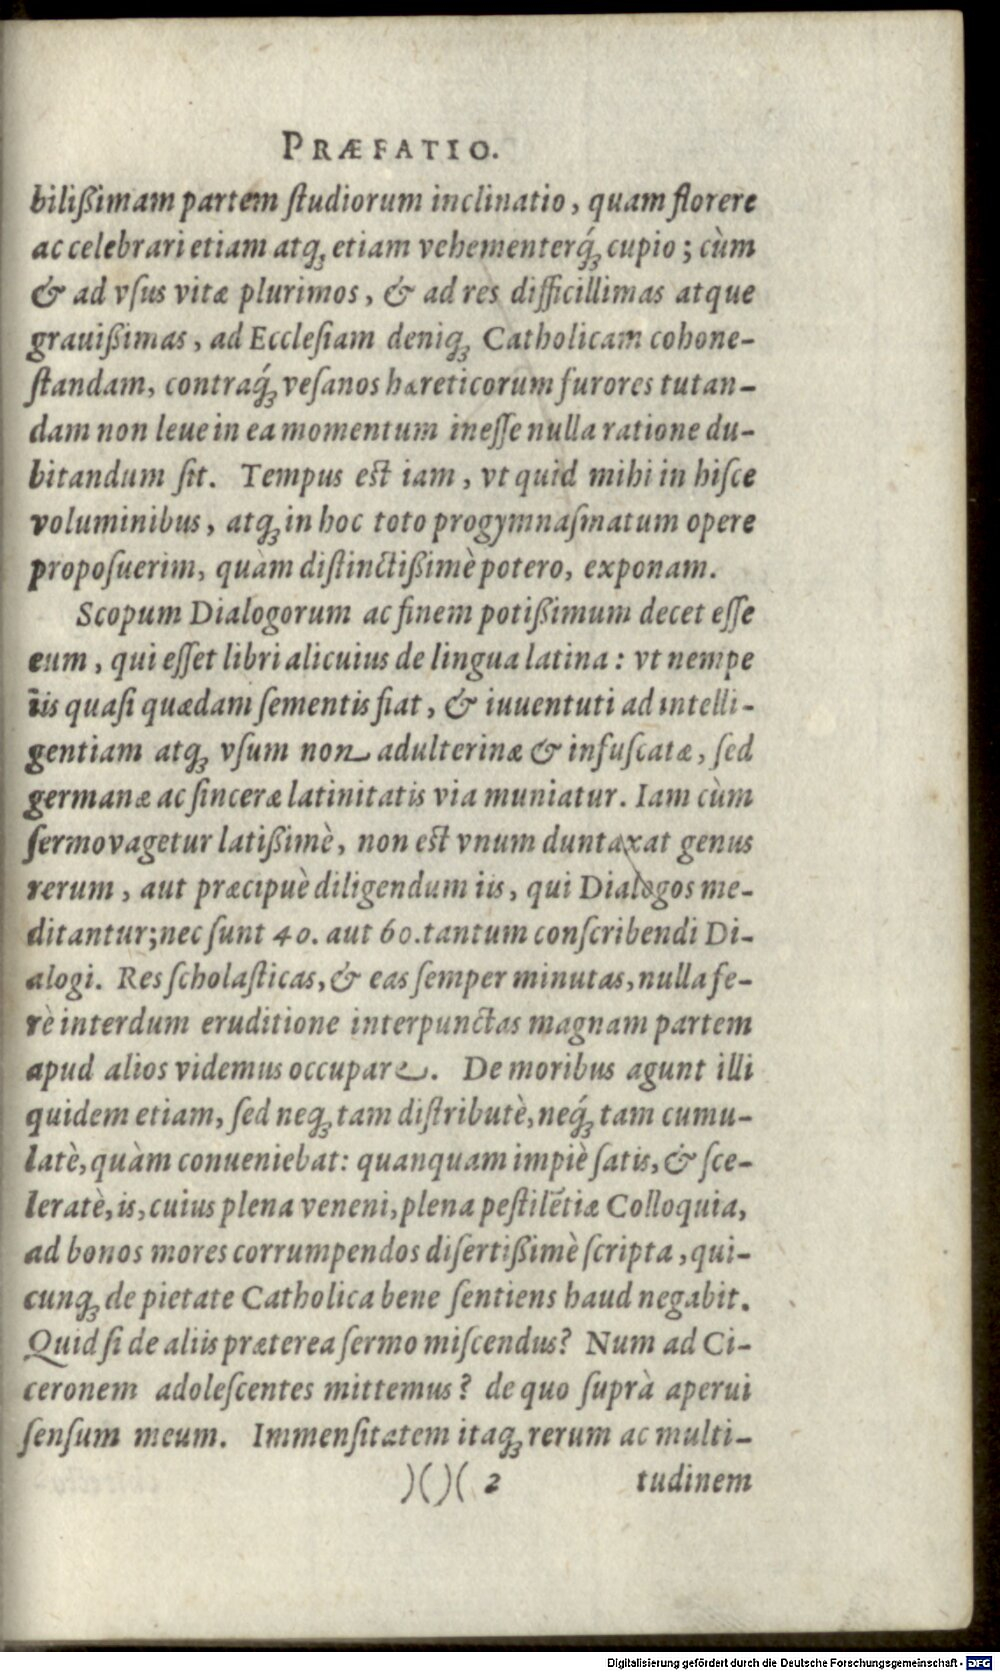 PRÆFATIO.
bilißimam partem ſtudiorum inclinatio, quam florere
ac celebrari etiam atq́ꝫ etiam vehementerq́ꝫ cupio; cùm
& ad vſus vitæ plurimos, & ad res difficillimas atque
grauißimas, ad Eccleſiam deniqꝫ Catholicam cohone-
ſtandam, contraq́ꝫ veſanos hæreticorum furores tutan-
dam non leue in ea momentum ineſſe nulla ratione du-
bitandum ſit. Tempus eſt iam, vt quid mihi in hiſce
voluminibus, atqꝫ in hoc toto progymnaſmatum opere
propoſuerim, quàm diſtinctißimè potero, exponam.
Scopum Dialogorum ac finem potißimum decet eſſe
eum, qui eſſet libri alicuius de lingua latina: vt nempe
iis quaſi quædam ſementis fiat, & iuuentuti ad intelli-
gentiam atqꝫ vſum non adulterinæ & infuſcatæ, ſed
germanæ ac ſinceræ latinitatis via muniatur. Iam cùm
ſermo vagetur latißimè, non eſt vnum duntaxat genus
rerum, aut præcipuè diligendum iis, qui Dialogos me-
ditantur; nec ſunt 40. aut 60. tantum conſcribendi Di-
alogi. Res ſcholaſticas, & eas ſemper minutas, nulla fe-
rè interdum eruditione interpunctas magnam partem
apud alios videmus occupare. De moribus agunt illi
quidem etiam, ſed neqꝫ tam diſtributè, neq́ꝫ tam cumu-
latè, quàm conueniebat: quanquam impiè ſatis, & ſce-
leratè, is, cuius plena veneni, plena peſtilẽtiæ Colloquia,
ad bonos mores corrumpendos diſertißimè ſcripta, qui-
cunqꝫ de pietate Catholica bene ſentiens haud negabit.
Quid ſi de aliis præterea ſermo miſcendus? Num ad Ci-
ceronem adoleſcentes mittemus? de quo ſuprà aperui
ſenſum meum. Immenſitatem itaqꝫ rerum ac multi-
)()( 2 tudinem
Digitalisierung gefördert durch die Deutsche Forschungsgemeinschaft - DFG